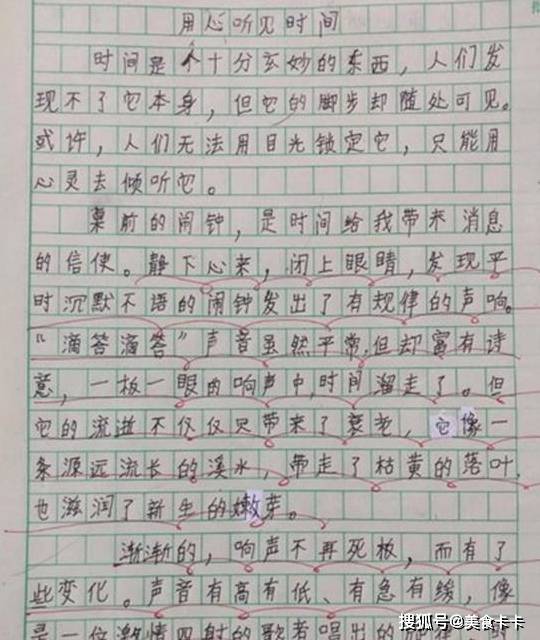 用心听见时间
时间是个十分玄妙的东西，人们发
现不了它本身，但它的脚步却随处可见。
或许，人们无法用目光锁定它，只能用
心灵去倾听它。
桌前的闹钟，是时间给我带来消息
的信使。静下心来，闭上眼睛，发现平
时沉默不语的闹钟发出了有规律的声响。
“滴答滴答”声音虽然平常，但却富有诗
意，一板一眼的响声中，时间溜走了。但
它的流逝不仅仅只带来了衰老，它像一
条源远流长的溪水，带走了枯黄的落叶，
也滋润了新生的嫩芽。
渐渐的，响声不再死板，而有了
些变化。声音有高有低、有急有缓，像
是一位激情四射的歌者唱出的
搜狐号@美食卡卡